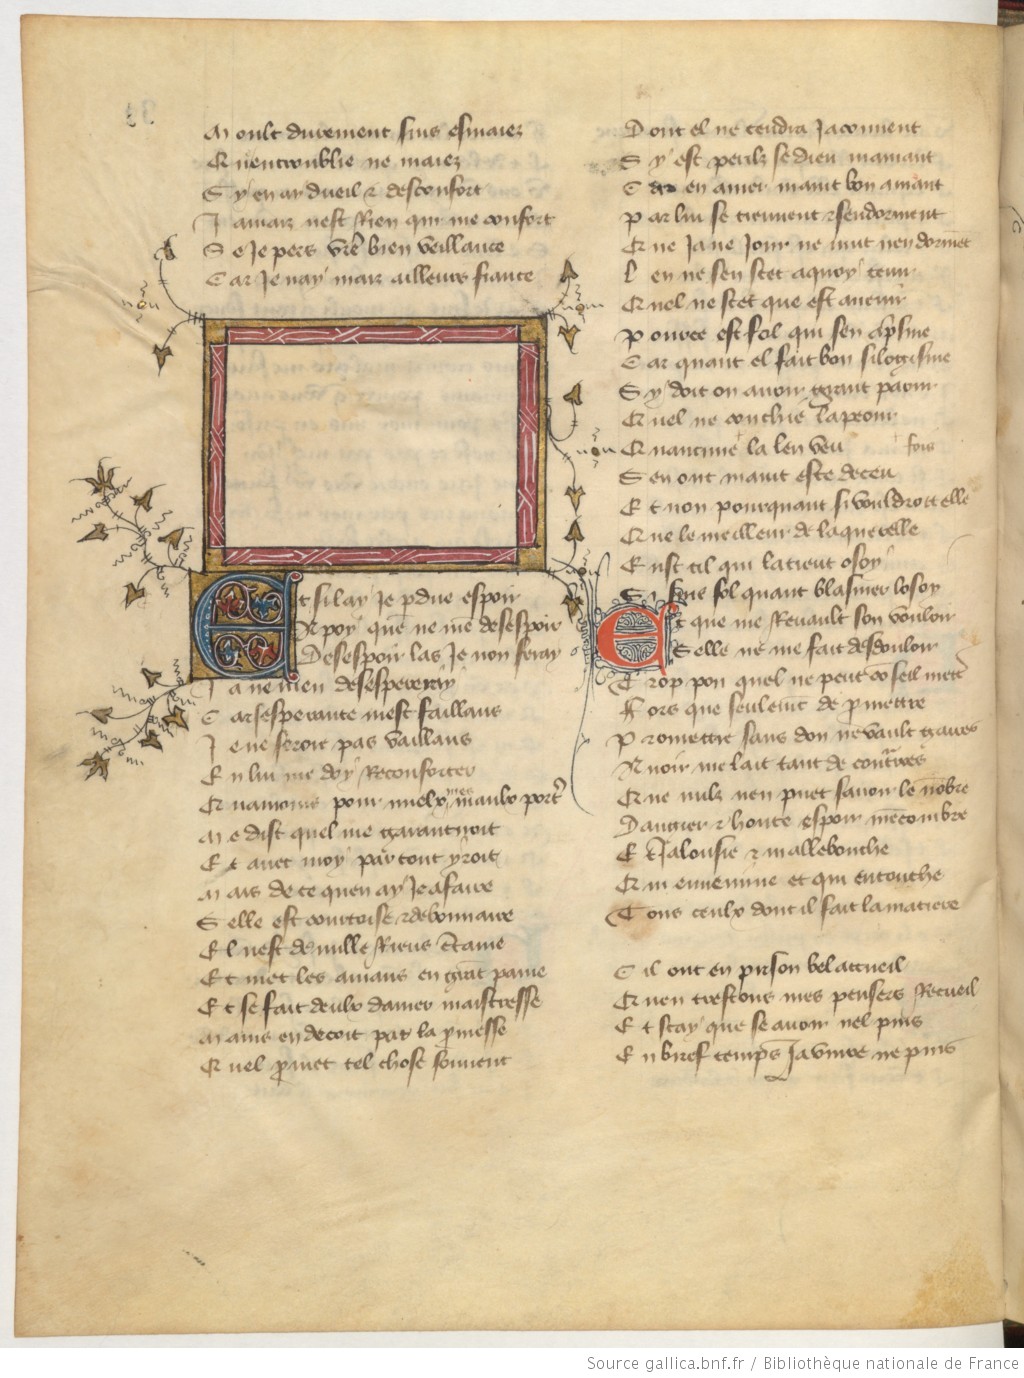 Moult durement suis esmaiez
Quentroublie ne maiez
Sy en ay dueil & desconfort
Jamaiz nest Rien qui me confort
Se Je pers vre bien veillance
Car Je nay maiz ailleurs fiance
Et si lay Je pdue espoir
A poy que ne me desespoir
Desespoir las Je non feray
Ja ne men desespereray
Car sesperance mest faillans
Je ne seroie pas vaillans
En lui me doy Reconforter
Quamours pour mielx mes maulx porter
Me dist quel me garantiroit
Et avec moy partout yroit
Mais de ce quen ay Je a faire
Selle est courtoise & debonnaire
El nest de nulle Riens certaine
Et met les amans en grant paine
Et se fait deulx dame & maistresse
Mains en decoit par la promesse
Quel promet tel chose souvent
Dont el ne tendra Ja convent
Sy est perilz se dieu mamant
Car en amer maint bon amant
Par lui se tiennent & sendorment
Qui ne Ja ne Jour ne nuit nen dorment
Len ne sen scet a quoy tenir
Quel ne scet que est avenir
Pource est fol qui sen apsme
Car quant el fait bon silogisme
Sy doit on avoir grant paour
Quel ne conchie la peour
Quaucune la len veu fois
Sen ont maint este deceu
Et non pourquant si vouldroit elle
Que le meilleur de la querelle
Eust cil qui la tient o soy
Si fuie fol quant blasmer losoy
Et que me Revault son vouloir
Selle ne me fait desdouloir
Trop pou quel ne peut conseil mettre
Fors que seulement de promettre
Promettre sans don ne vault gaires
Avoir me lait tant de contraires
Que nulz nen puet savoir le nombre
Dangier & honte espoir mencombre
Et Jalousie & mallebouche
Qui envenime et qui entouche
Tous ceulx dont il fait la matiere
Cil ont en prison bel accueil
Quen trestous mes pensers Recueil
Et scay que se avoir nel puis
En brief temps Ja vivre ne puis
Source gallica.bnf.fr / Bibliothèque nationale de France